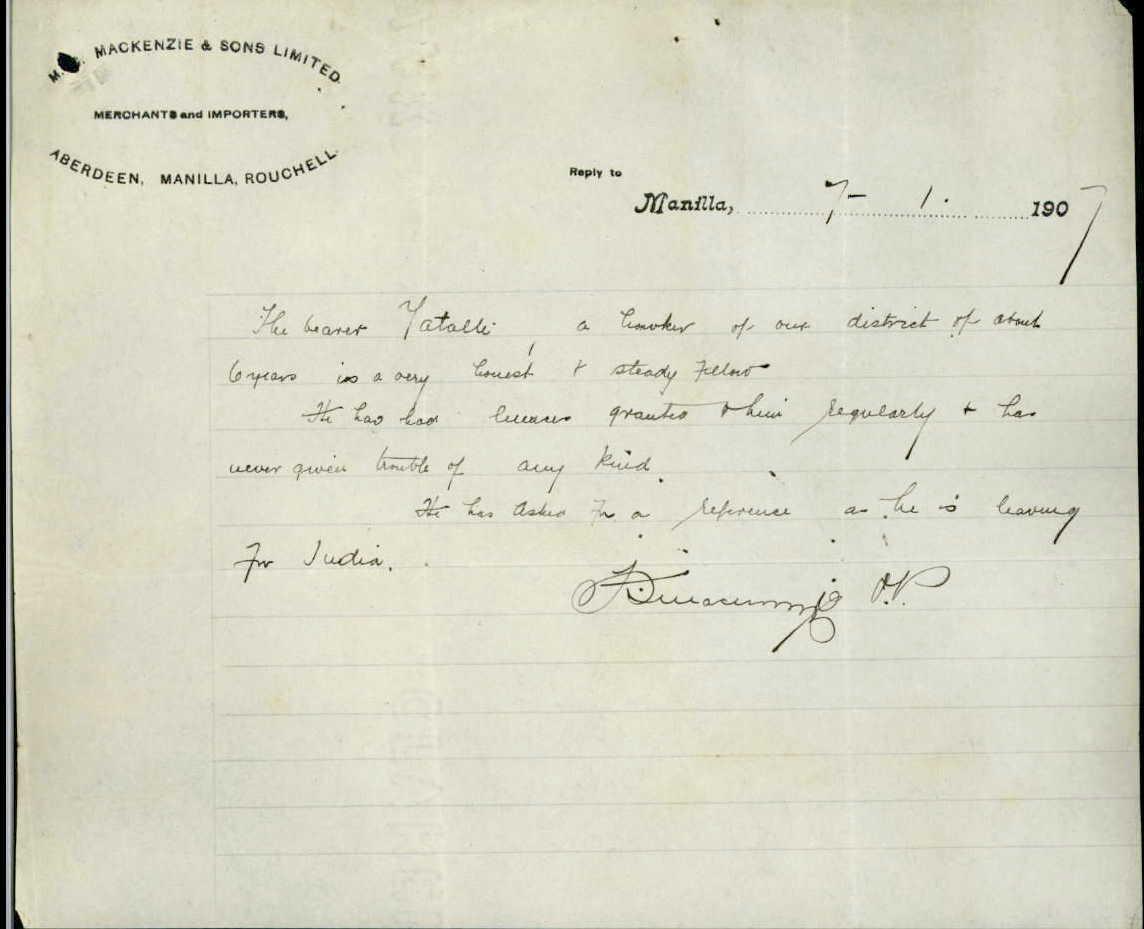 MACKENZIE & SONS LIMITED.
MERCHANTS and IMPORTERS,
ABERDEEN, MANILLA, ROUCHELL.
Reply to
Manilla, 7 - 1. 1907
The bearer Fatalli a hawker of our district of about
6 years is a very honest & steady fellow
He has had licences granted to him regularly & has
never given trouble of any kind.
He has asked for a reference as he is leaving
for India.
J.P.